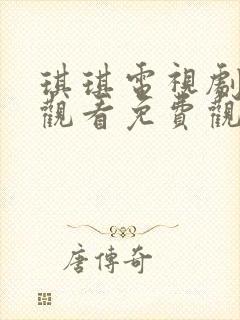 琪琪電視劇
觀看免費觀
唐傳奇